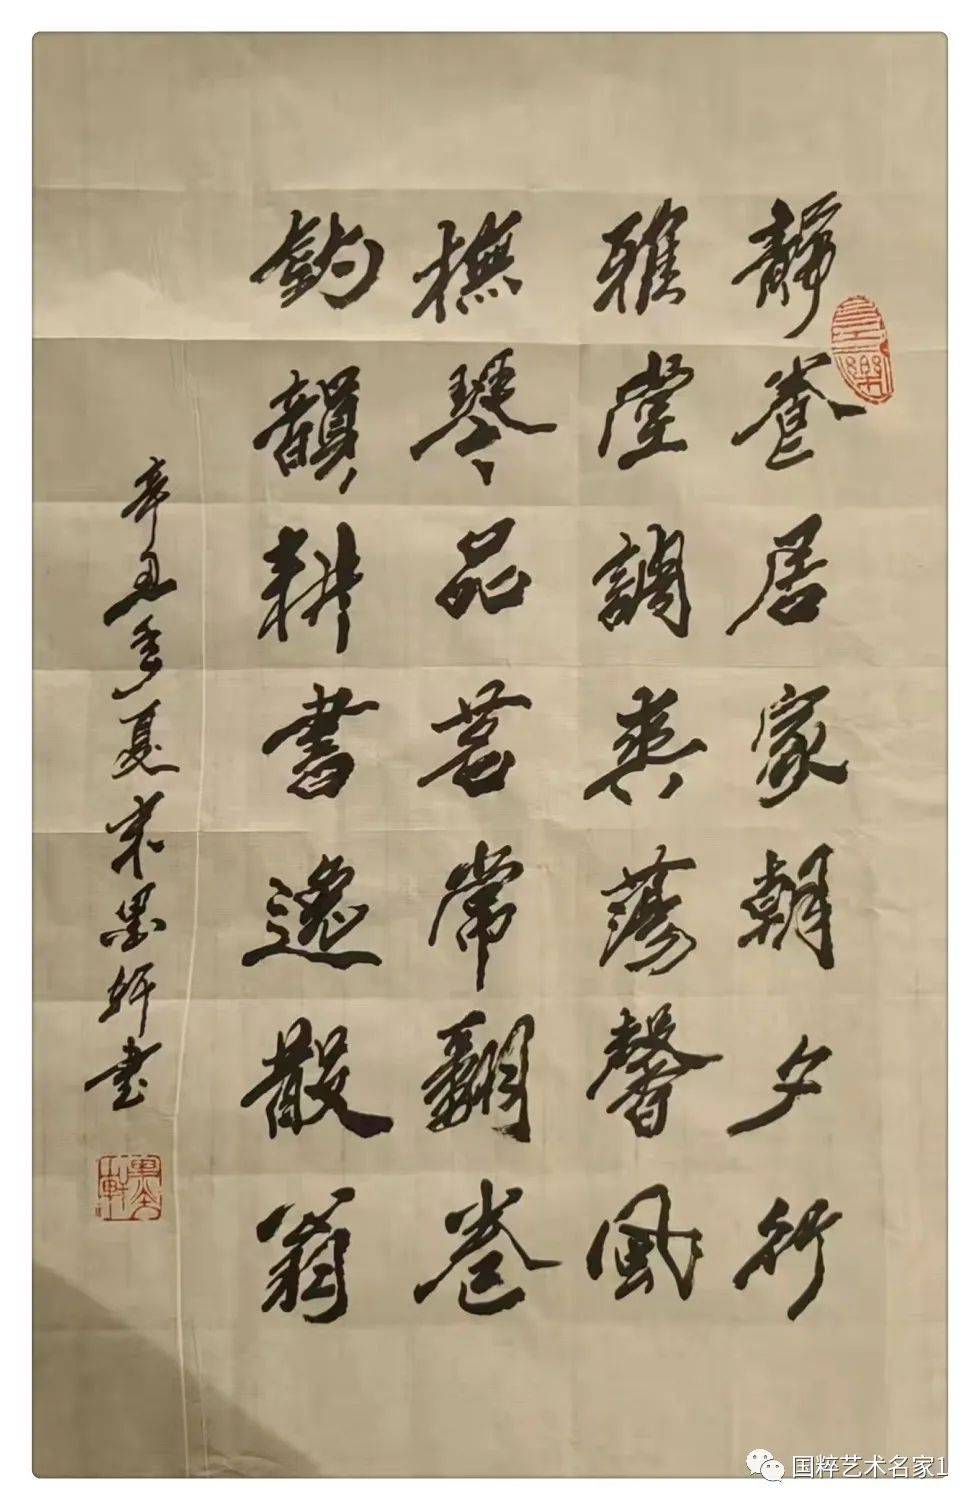 靜養居家朝夕行
雅堂調奕蕩馨風
撫琴品茗常翻卷
鈎韻耕書逸散翁
辛丑季夏宋墨軒書
国粹艺术名家1